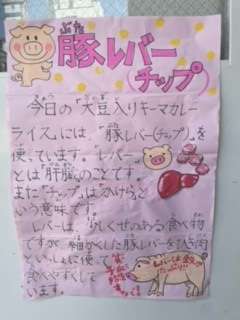 豚レバー
チップ
今日の「大豆入りキーマカレー
ライス」には、「豚レバー(チップ)」を
使っています。「レバー」
とは「肝臓」のことです。
また「チップ」は「かけら」と
いう意味です。
レバーは、少しくせのある食べ物
ですが、細かくした豚レバーをひき肉
といっしょに使って
食べやすくして
います。
レバーは鉄
たっぷり!!